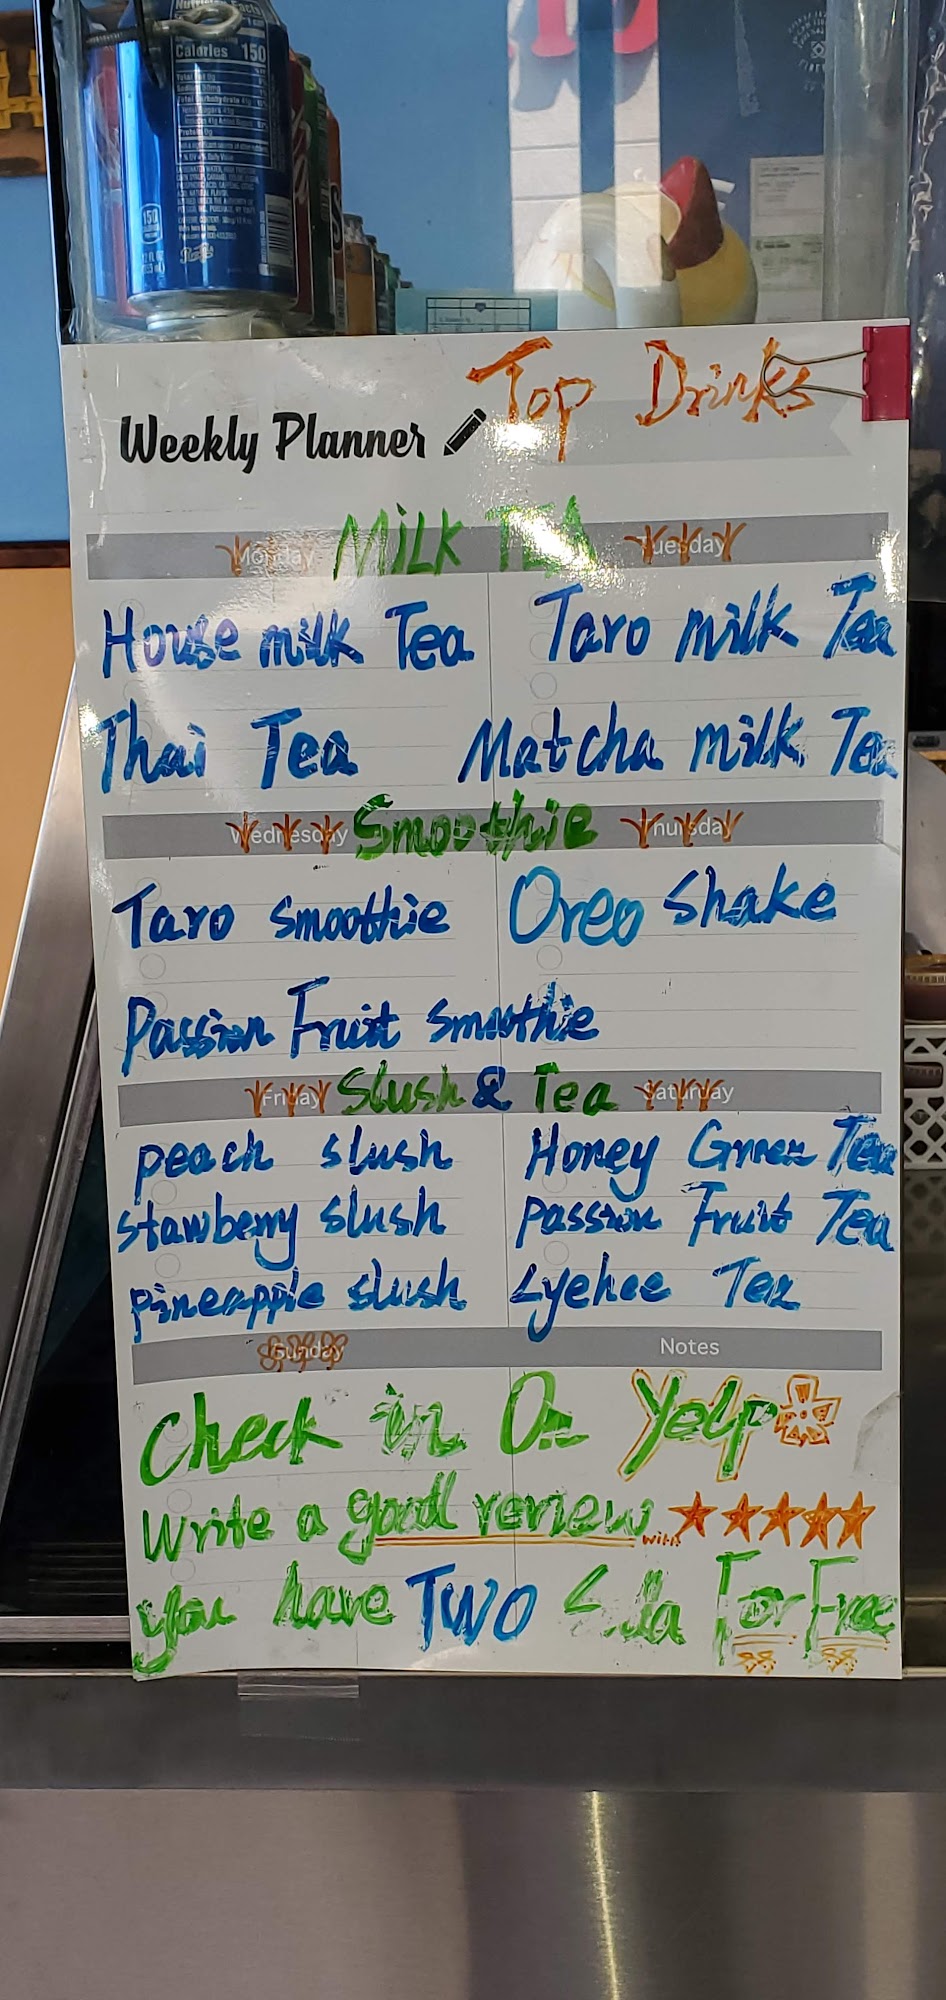 Nutrition Facts
Calories 150
Top Drinks
Weekly Planner
Monday MiLK TEA Tuesday
House milk Tea Taro milk Tea
Thai Tea Matcha milk Tea
Wednesday Smoothie Thursday
Taro smoothie Oreo shake
Passion Fruit smoothie
Friday Slush & Tea Saturday
peach slush Honey Green Tea
stawberry slush passion Fruit Tea
pineapple slush Lyehee Tea
Sunday Notes
Check in On Yelp
Write a good review with
you have TWO For Free